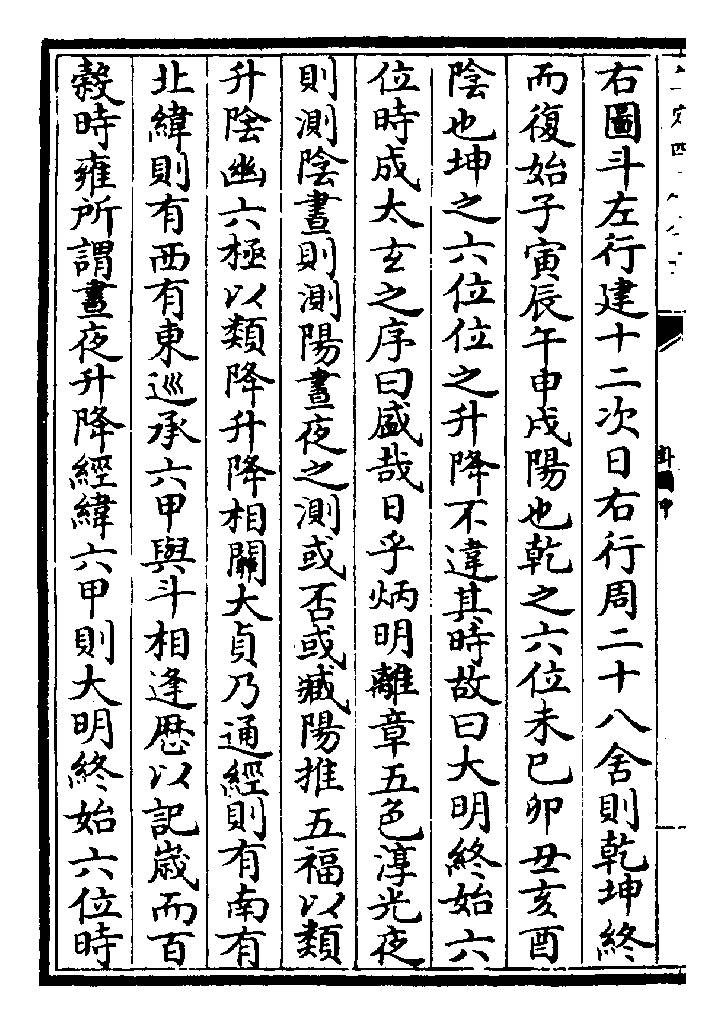 右圖斗左行建十二次日右行周二十八舍則乾坤終
而復始子寅辰午申戌陽也乾之六位未巳卯丑亥酉
陰也坤之六位位之升降不違其時故曰大明終始六
位時成太玄之序曰盛哉日乎炳明離章五色淳光夜
則測陰晝則測陽晝夜之測或否或臧陽推五福以類
升陰幽六極以類降升降相關大貞乃通經則有南有
北緯則有西有東巡承六甲與斗相逢厯以記嵗而百
榖時雍所謂晝夜升降經緯六甲則大明終始六位時